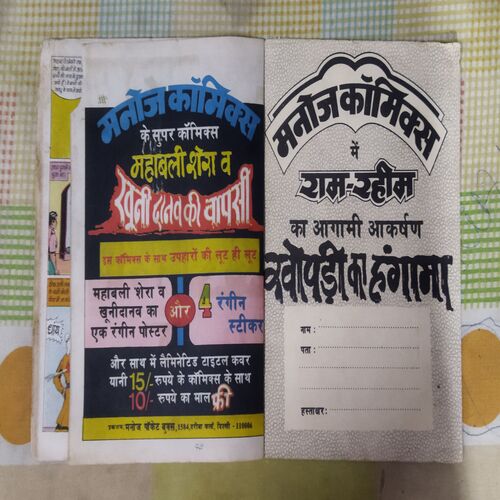 मनोज कॉमिक्स
के सुपर कॉमिक्स
महाबली शेरा व
खूनी दानव की वापसी
इस कॉमिक्स के साथ उपहारों की लूट ही लूट
महाबली शेरा व
खूनीदानव का
एक रंगीन पोस्टर
और
4 रंगीन
स्टीकर
और साथ में लैमिनेटिड टाइटल कवर
यानी 15/- रुपये के कॉमिक्स के साथ
10/- रुपये का माल फ्री
प्रकाशक: मनोज पॉकेट बुक्स, 1584, दरीबा कलाँ, दिल्ली - 110006
मनोज कॉमिक्स
में
राम-रहीम
का आगामी आकर्षण
खोपड़ी का हंगामा
नाम :
पता :
हस्ताक्षर: